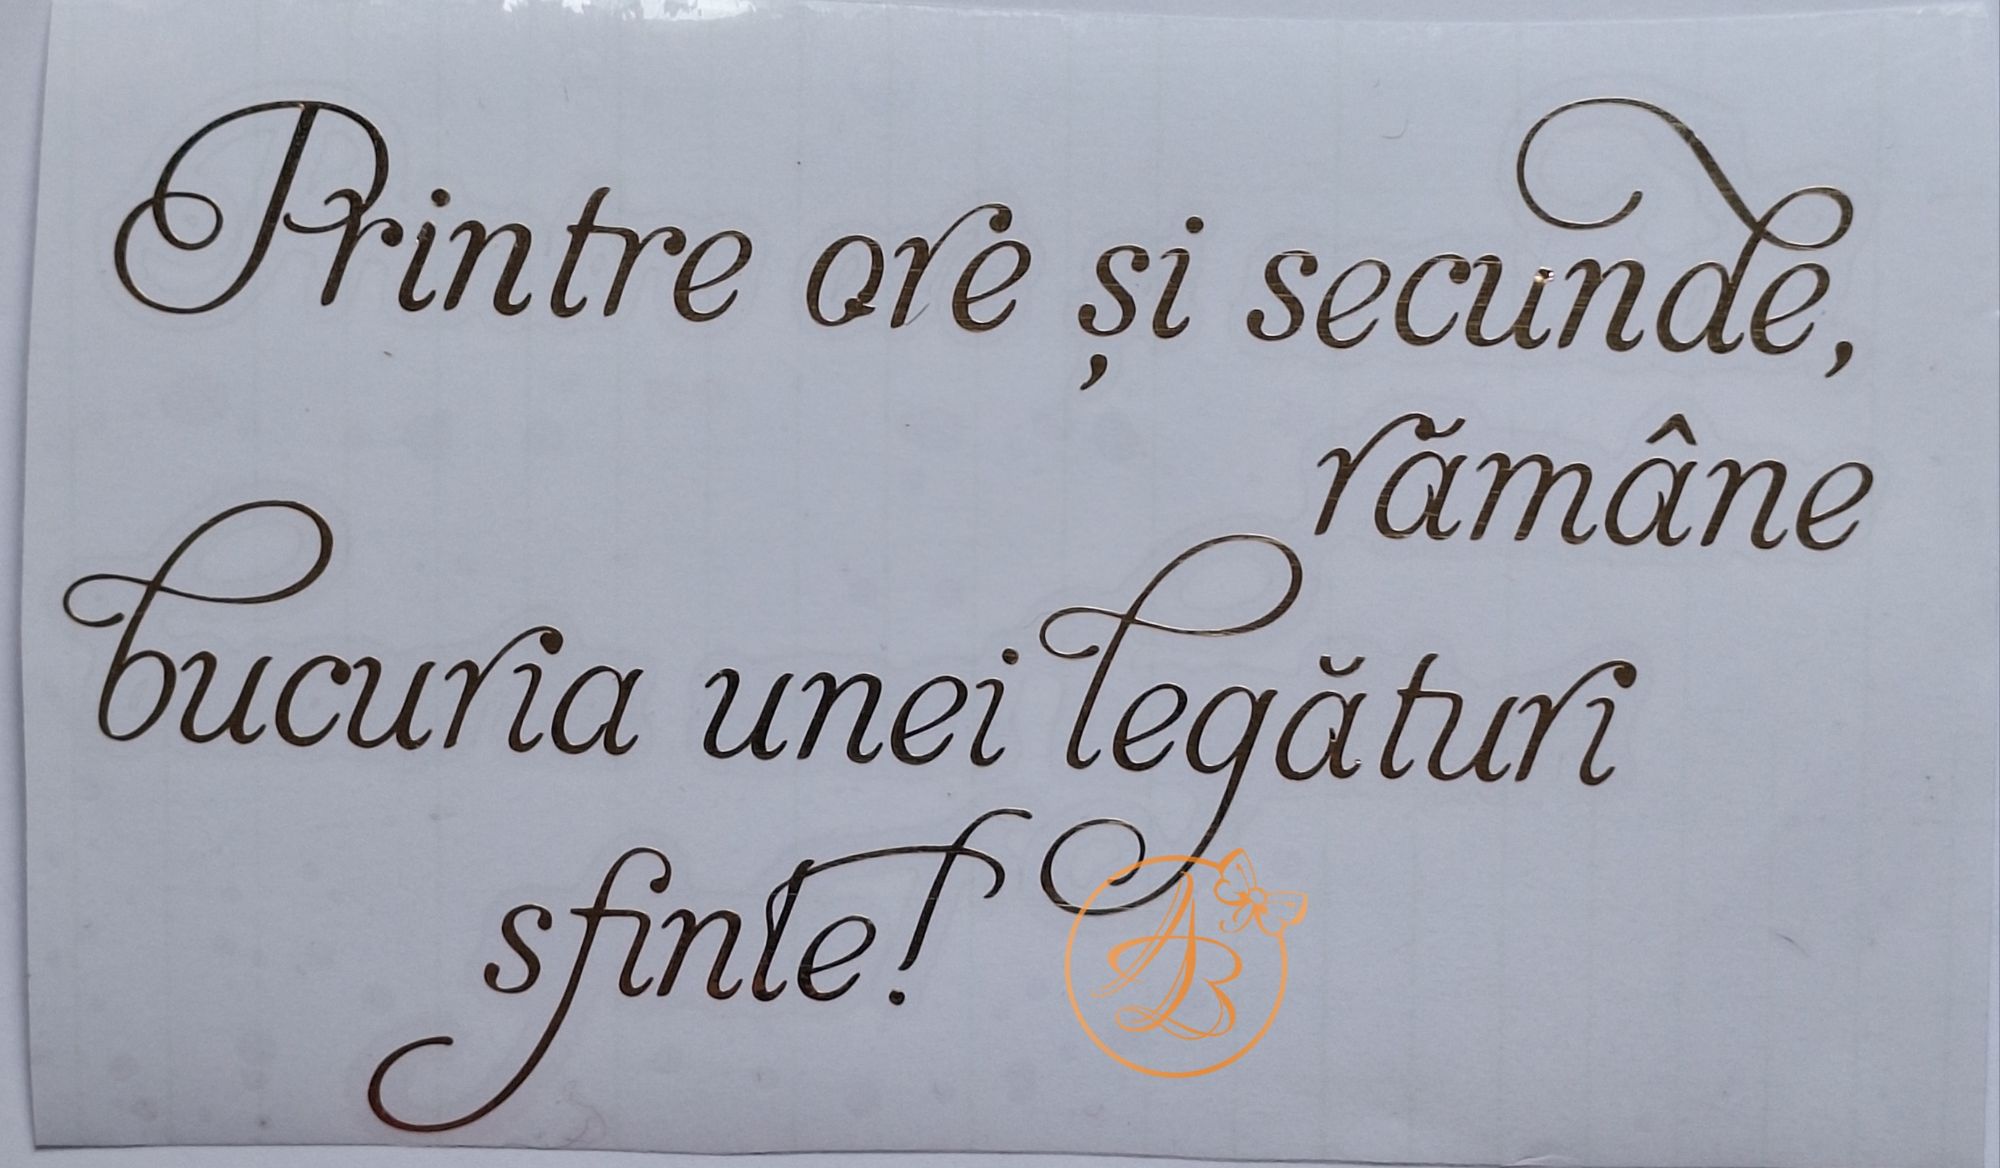 Printre ore și secunde,
rămâne
bucuria unei legături
sfinte!
AB